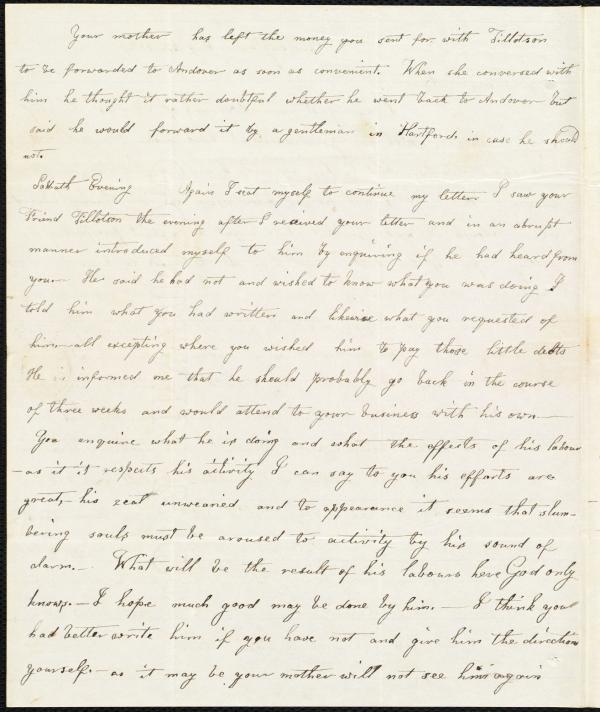 Your mother has left the money you sent for with Tillotson
to be forwarded to Andover as soon as convenient. When she conversed with
him he thought it rather doubtful whether he went back to Andover but
said he would forward it by a gentleman in Hartford in case he should
not.
Sabbath Evening Again I seat myself to continue my letter I saw your
Friend Tillotson the evening after I received your letter and in an abrupt
manner introduced myself to him by enquiring if he had heard from
you — He said he had not and wished to know what you was doing I
told him what you had written and likewise what you requested of
him — all excepting where you wished him to pay those little debts
He informed me that he should probably go back in the course
of three weeks and would attend to your business with his own —
You enquire what he is doing and what the effects of his labour
— as it respects his activity I can say to you his efforts are
great, his zeal unwearied and to appearance it seems that slum-
bering souls must be aroused to activity by his sound of
alarm. — What will be the result of his labours here God only
knows. — I hope much good may be done by him. — I think you
had better write him if you have not and give him the direction
yourself. — as it may be your mother will not see him again